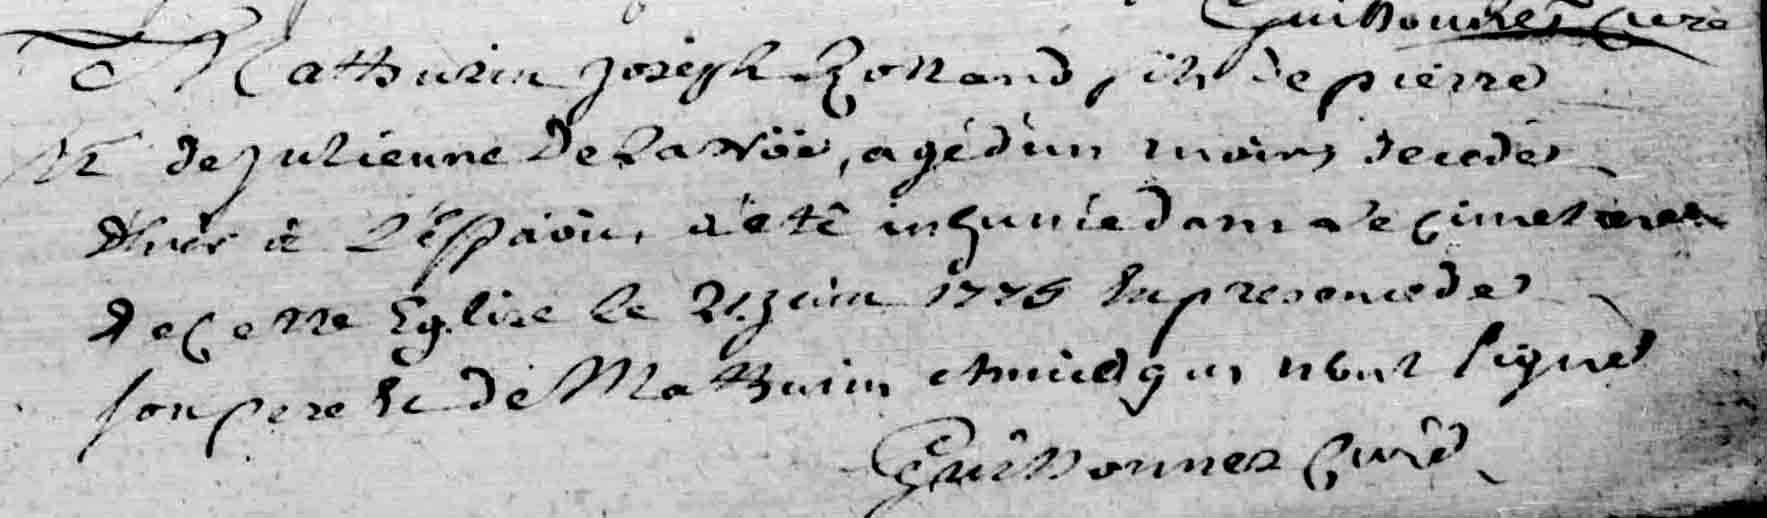 Guillonnet Curé
Mathurin joseph Rolland fils de pierre
Et de julienne De Lanöe, agé d'un mois decedé
d'hier à L'Espaöu, a été inhumé dans le Cimetiere
de Cette Eglise le 21 juin 1775 En presence de
son pere Et de Mathurin qui n'ont signé
Guillonnet Curé